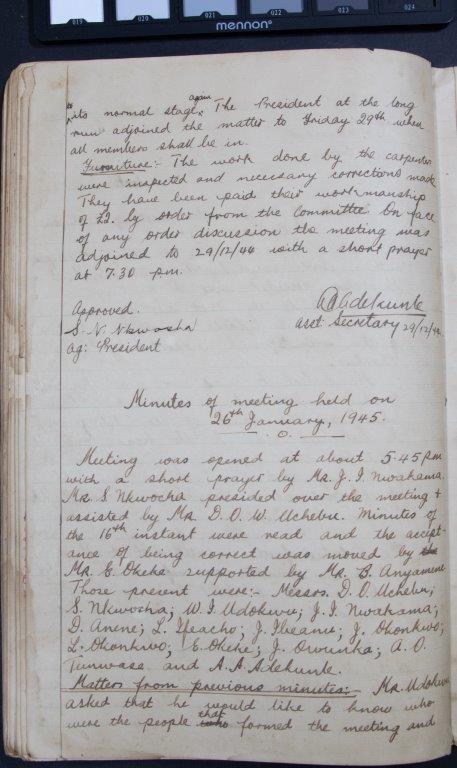 019 020 021 022 023 024
mennon®
its normal stage again. The President at the long
run adjoined the matter to Friday 29th when
all members shall be in.
Furniture:- The work done by the carpenter
were inspected and necessary corrections made
They have been paid their workmanship
of £2. by order from the Committee. On face
of any order discussion the meeting was
adjoined to 29/12/44 with a short prayer
at 7.30 pm.
Approved.
S. N. Nkwocha
ag: President
A A Adekunle
asst: Secretary 29/12/44
Minutes of meeting held on
26th January, 1945.
Meeting was opened at about 5.45 pm
with a short prayer by Mr. J. I. Nwakama.
Mr. S Nkwocha presided over the meeting +
assisted by Mr. D. O. W. Uchebu. Minutes of
the 16th instant were read and the accept-
ance of being correct was moved by the
Mr. E. Okeke supported by Mr. B. Anyamene
Those present were:- Messrs. D. O. Uchebu;
S. Nkwocha; W. I. Udokwu; J. I. Nwakama;
D. Anene; L. Ifeacho; J. Ibeanu; J. Okonkwo;
L. Okonkwo; E. Okeke; J. Owunka; A. O.
and A. A. Adekunle.
Matters from previous minutes:- Mr. Udokwu
asked that he would like to know who
were the people who that formed the meeting and